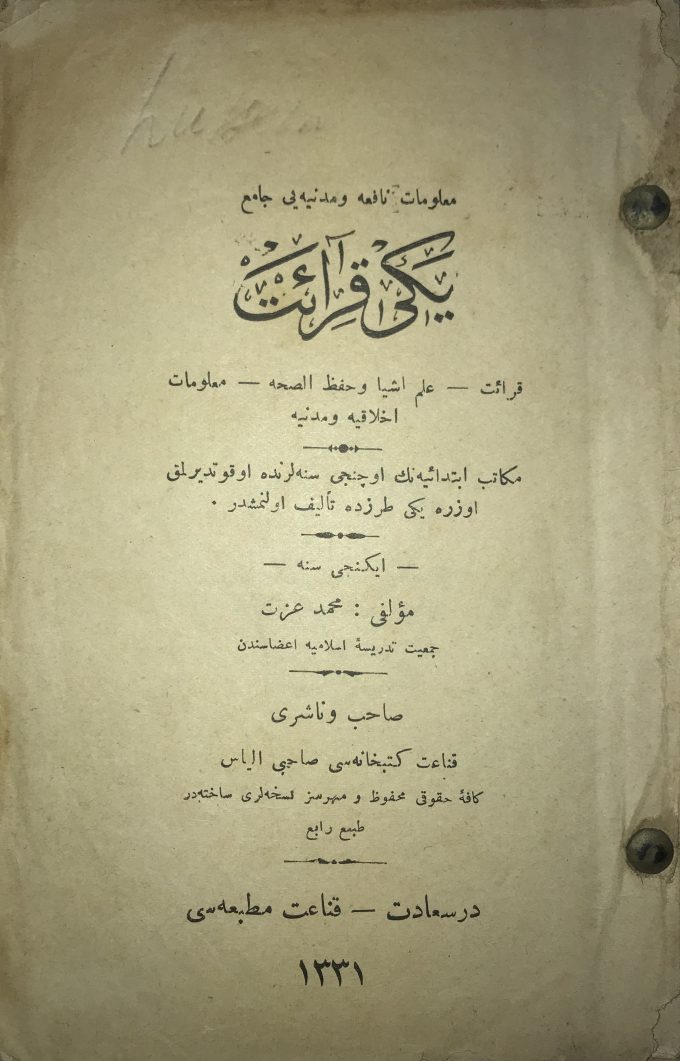 معلومات نافعه ومدنیه‌یی جامع
یکی قرائت
قرائت — علم اشیا وحفظ الصحه — معلومات
اخلاقیه ومدنیه
مکاتب ابتدائیه‌نك اوچنجی سنه‌لرنده اوقوتدیرلمق
اوزره یکی طرزده تألیف اولنمشدر .
— ایکنجی سنه —
مؤلفی : محمد عزت
جمعیت تدریسیۀ اسلامیه اعضاسندن
صاحب وناشری
قناعت کتبخانه‌سی صاحبی الیاس
کافۀ حقوقی محفوظ و مهرسز نسخه‌لری ساخته‌در
طبع رابع
درسعادت — قناعت مطبعه‌سی
١٣٣١